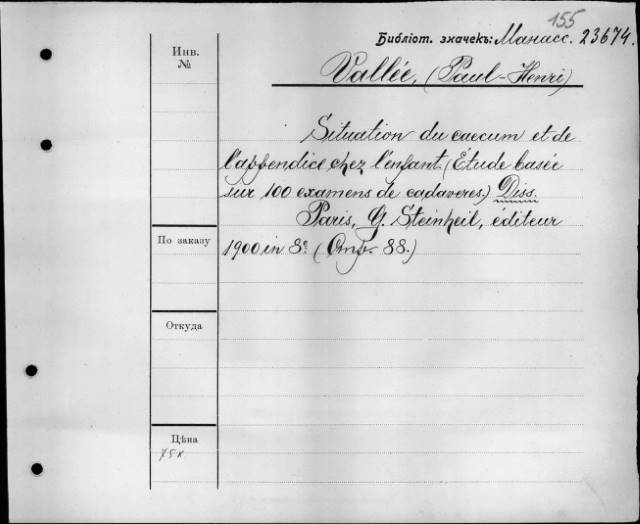 155
Библіот. значекъ: Манасс. 23674.
Инв.
№
Vallée, (Paul-Henri)
Situation du caecum et de
l'appendice chez l'enfant. (Étude basée
sur 100 examens de cadaveres) Diss.
Paris, G. Steinheil, éditeur
По заказу
1900 in 8º. ( 88.)
Откуда
Цѣна
75к